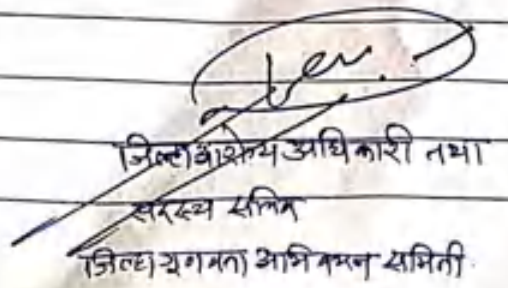 जिल्हा आरोग्य अधिकारी तथा
सदस्य सचिव
जिल्हा गुणवत्ता आश्वासन समिती.